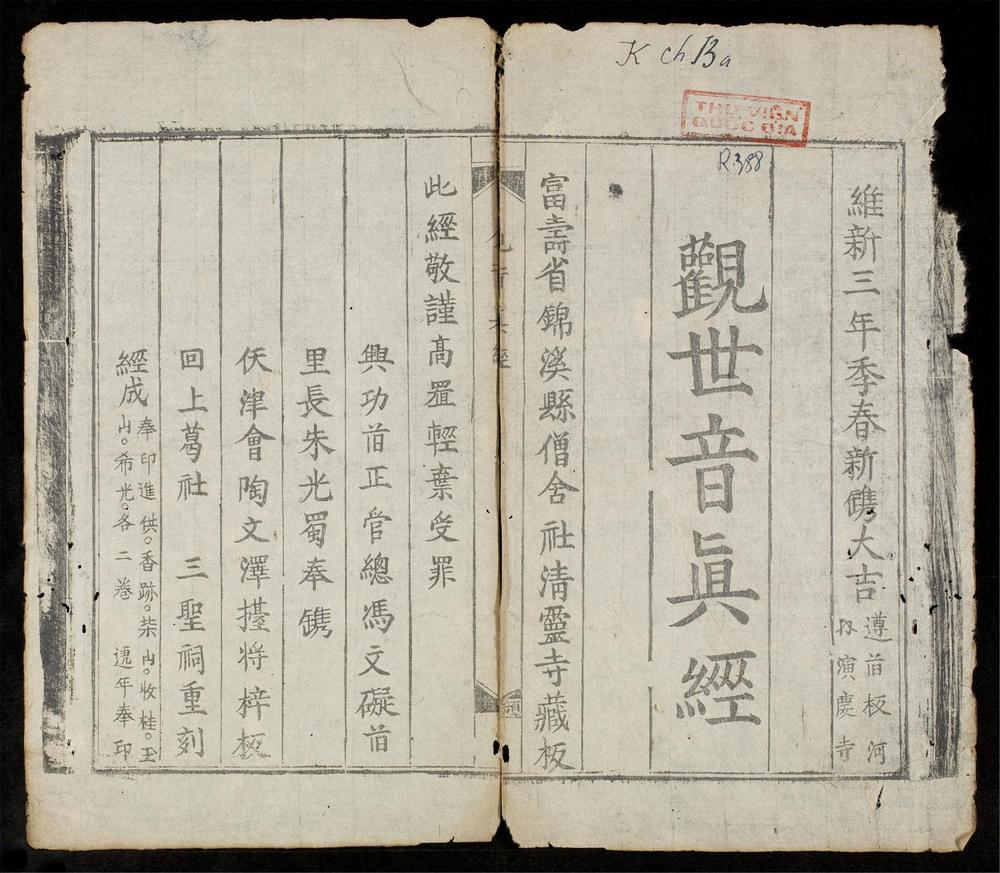 K ch Ba
THƯ VIỆN
QUỐC GIA
R.388
維新三年季春新鐫大吉
遵前板河
演慶寺
觀世音眞經
富壽省錦溪縣僧舍社清靈寺藏板
經
此經敬謹高置輕棄受罪
興功前正管總馮文礙前
里長朱光蜀奉鐫
伕津會陶文澤擡將梓板
回上葛社 三聖祠重刻
經成
奉印進供。香跡。柴山。收桂。玉
山。希光。各二卷 遞年奉印